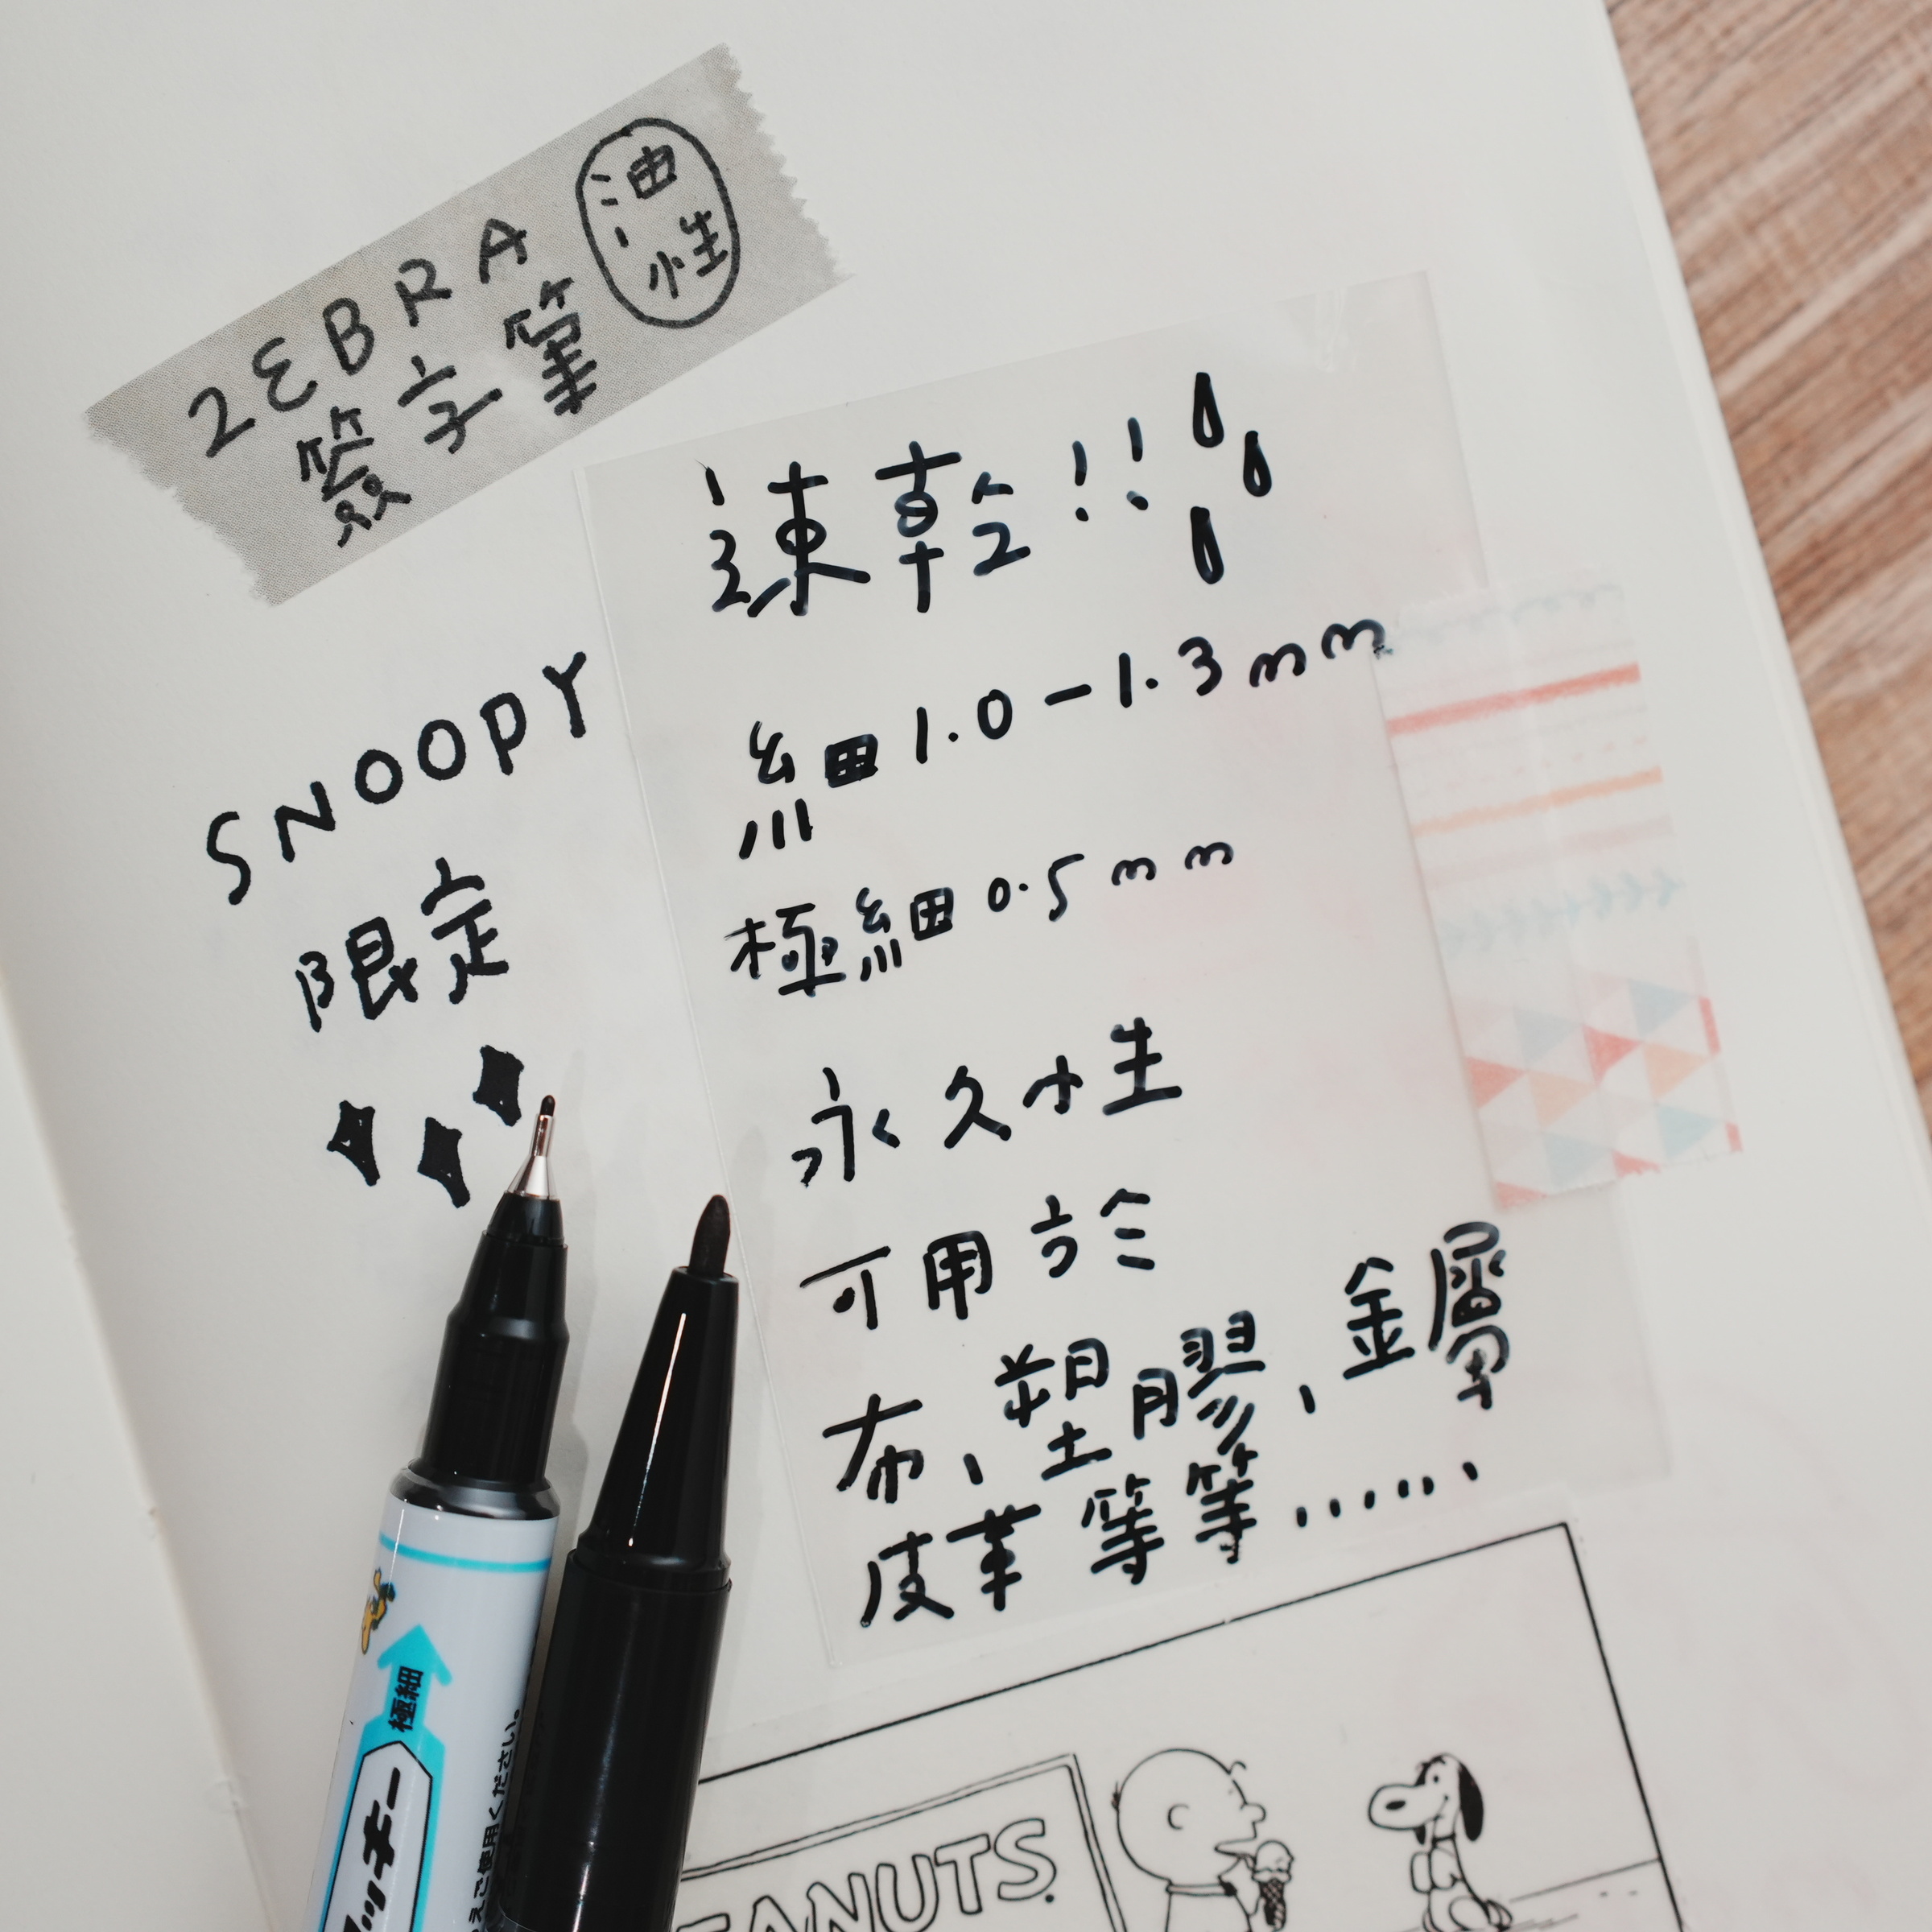 ZEBRA
簽字筆
油性
速乾!!
SNOOPY
限定
細 1.0-1.3mm
極細 0.5mm
永久性
可用於
布、塑膠、金屬
皮革等等......
極細
ッキー
ご使用ください。
PEANUTS.